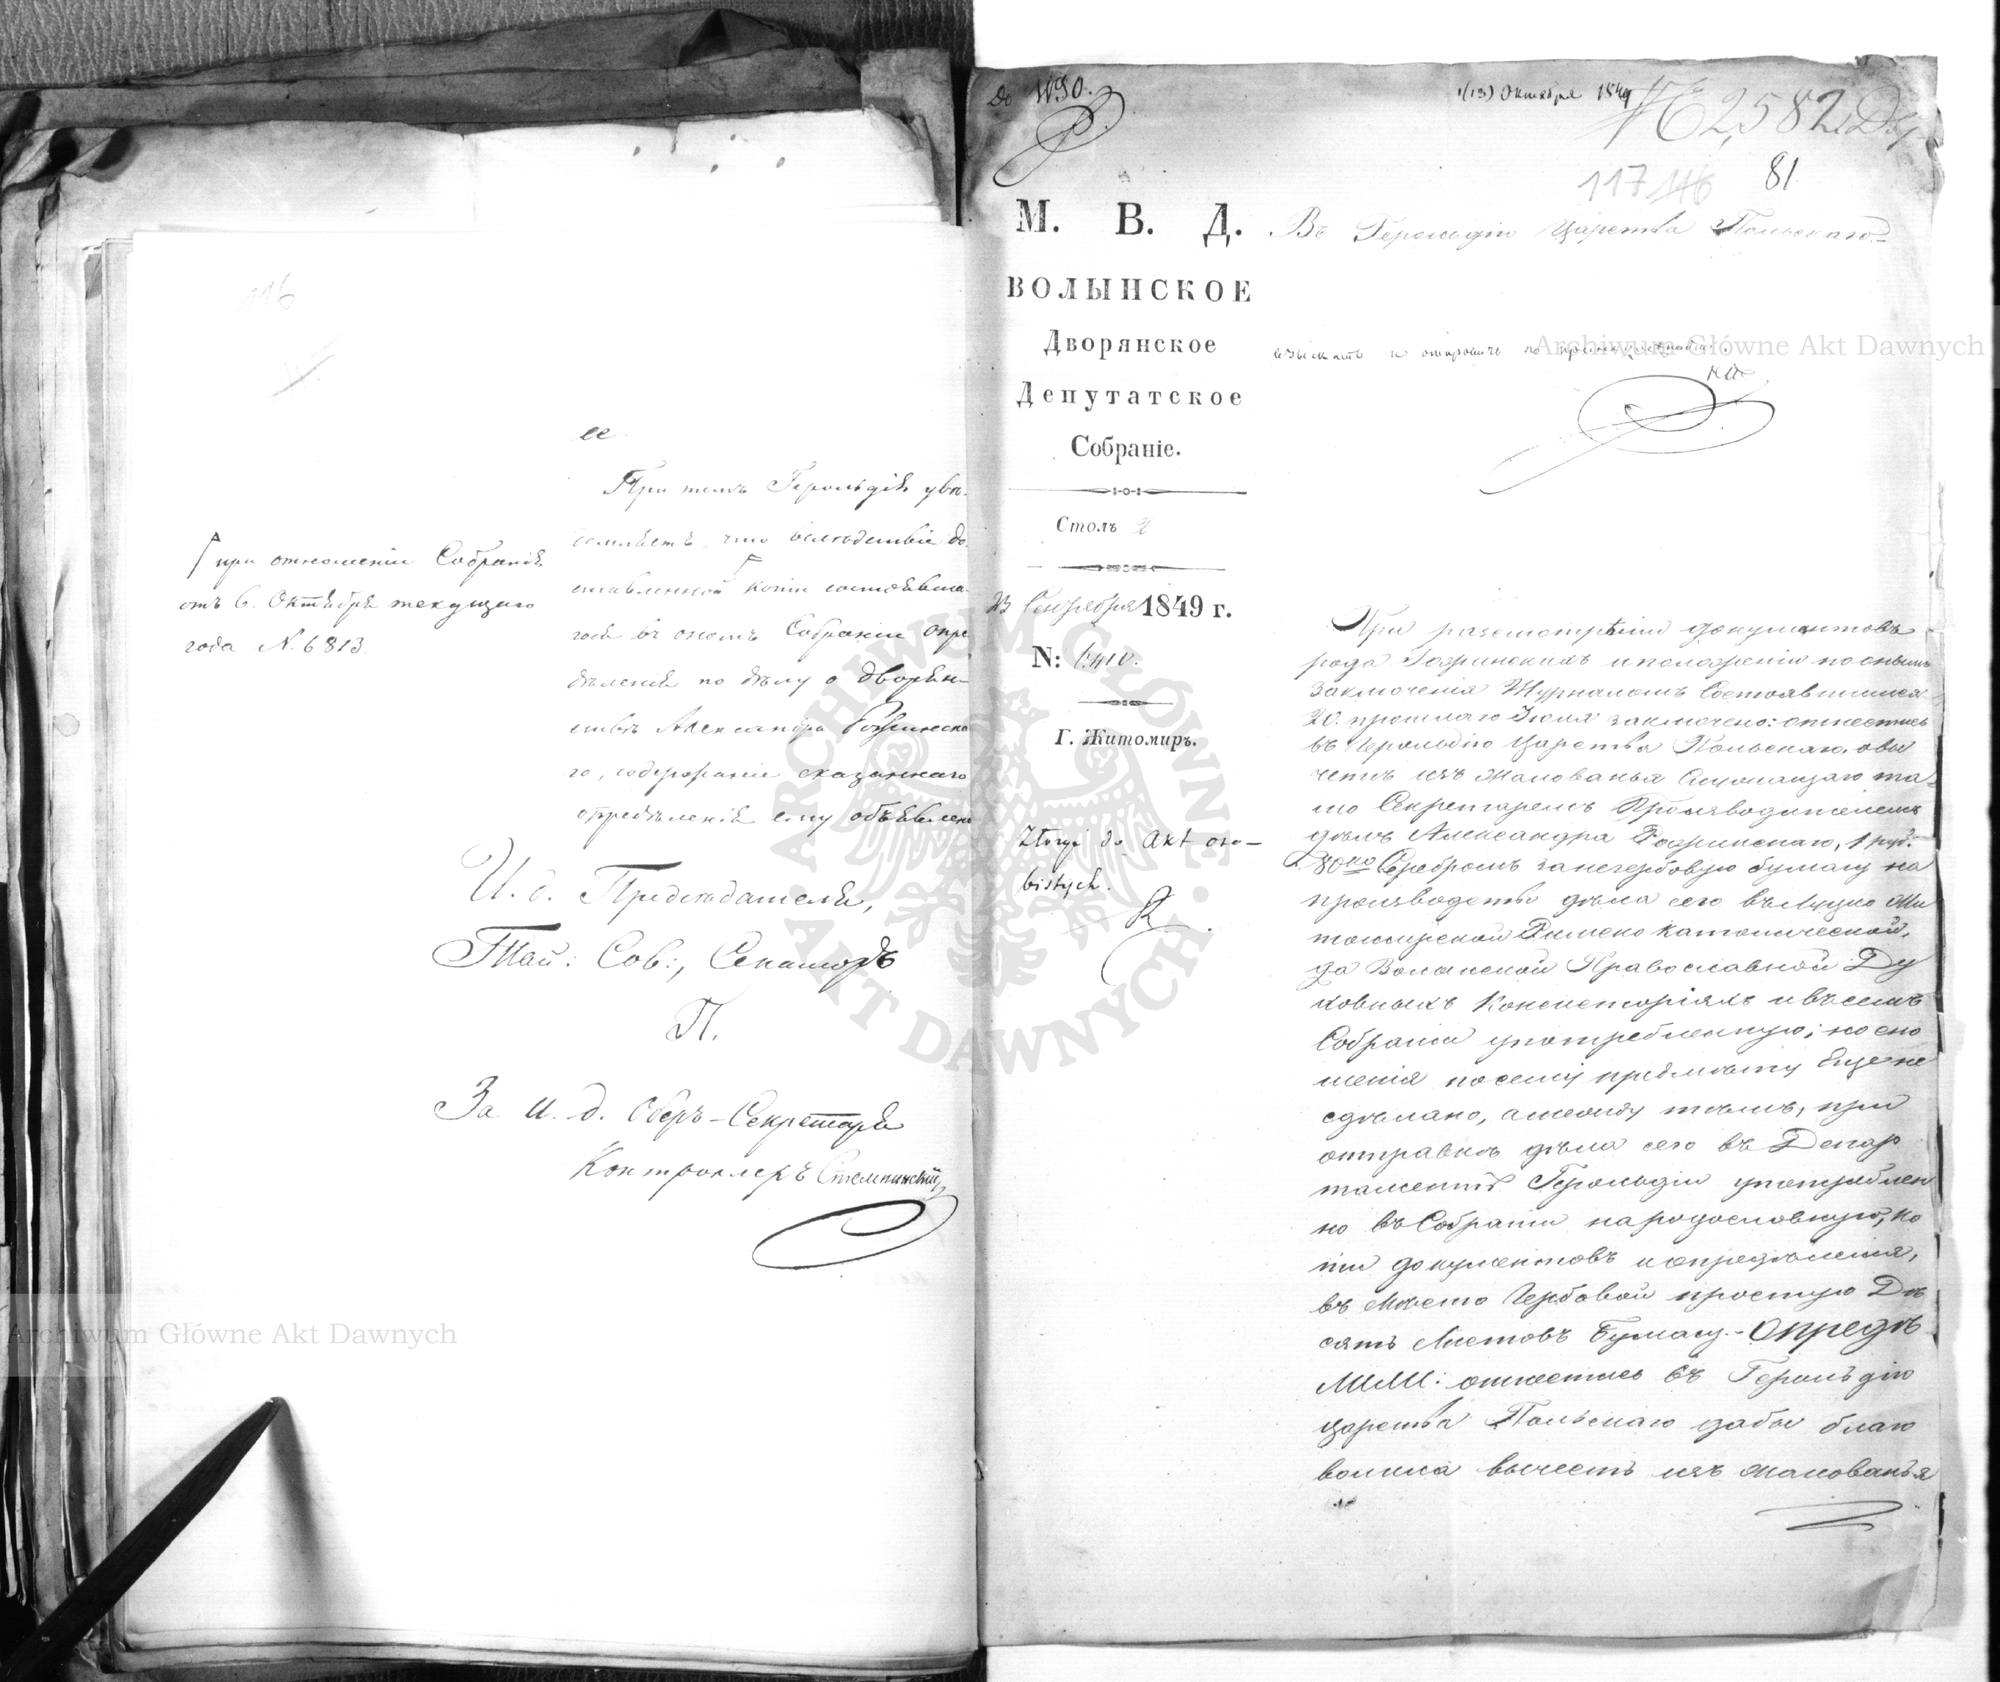 116
ее.
При томъ Герольдія увѣ-
домляетъ, что вслѣдствіе до
ставленной копіи состоявша-
гося въ ономъ Собраніи опре
дѣленія по дѣлу о дворян-
ствѣ Александра
го, содержаніе сказаннаго
опредѣленія ему объявлено
при отношеніи Собранія
отъ 6. Октября текущаго
года N. 6813.
И. д. Предсѣдателя,
Тай: Сов:, Сенаторъ
П.
За И. д. Оберъ-Секретаря
Контролеръ Стемпинскій
до 1190.
1(13) Октября 1849
N 2,582
117 116 81
М. В. Д.
ВОЛЫНСКОЕ
Дворянское
Депутатское
Собраніе.
Столъ 2
23 Сентября 1849 г.
N: 6410.
Г. Житомиръ.
Złożyć do Akt oso-
bistych.
Въ Герольдію Царства Польскаго
взыскать и отправить по
При разсмотрѣніи документовъ
рода и положеніи по онымъ
заключенія Журналомъ Состоявшимся
20. прошлаго Іюля заключено: отнестись
въ Герольдію Царства Польскаго, о вы
четѣ изъ Жалованья Служащаго та-
мо Секретаремъ Производителемъ
дѣлъ Александра 1 руб.
80 ко Серебромъ за негербовую бумагу на
производство дѣла сего въ Луцко Жи
томирской Римско католической,
да Волынской Православной Ду
ховныхъ Консисторіяхъ и въ семъ
Собраніи употребленную; но сно
шенія по сему предмѣту Еще не
сдѣлано, а между тѣмъ, при
отправкѣ дѣла сего въ Депар
таментъ Герольдіи употреблен
но въ Собраніи народословную, ко
піи документовъ и опредѣленія,
въ мѣсто Гербовой простую Де
сять Листовъ бумагу. - Опредѣ
лили: отнестись въ Герольдію
Царства Польскаго дабы благо
волила вычесть изъ жалованья
Archiwum Główne Akt Dawnych
Archiwum Główne Akt Dawnych
ARCHIWUM GŁÓWNE · AKT DAWNYCH ·